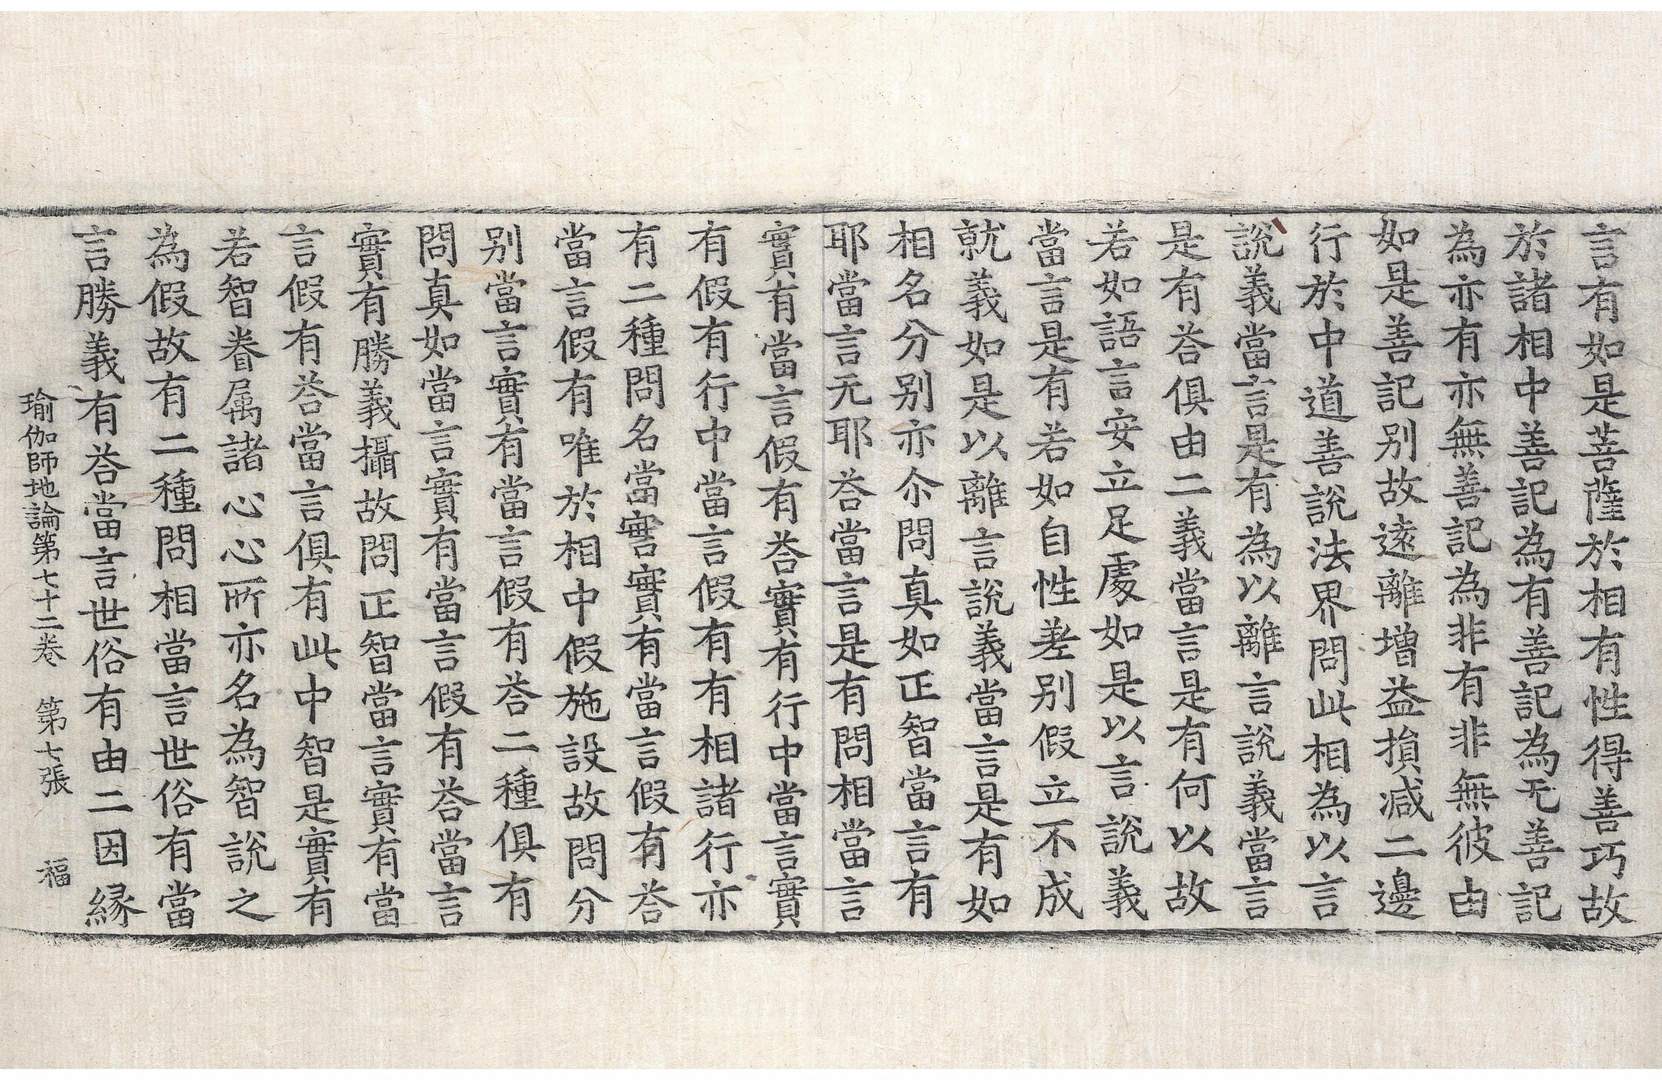 言有如是菩薩於相有性得善巧故
於諸相中善記為有善記為无善記
為亦有亦無善記為非有非無彼由
如是善記別故遠離增益損减二邊
行於中道善說法界問此相為以言
說義當言是有為以離言說義當言
是有荅俱由二義當言是有何以故
若如語言安立足處如是以言說義
當言是有若如自性差别假立不成
就義如是以離言說義當言是有如
相名分别亦尒問真如正智當言有
耶當言无耶荅當言是有問相當言
實有當言假有荅實有行中當言實
有假有行中當言假有有相諸行亦
有二種問名當言實有當言假有荅
當言假有唯於相中假施設故問分
别當言實有當言假有荅二種俱有
問真如當言實有當言假有荅當言
實有勝義攝故問正智當言實有當
言假有荅當言俱有此中智是實有
若智眷属諸心心所亦名為智說之
為假故有二種問相當言世俗有當
言勝義有荅當言世俗有由二因緣
瑜伽師地論第七十二卷　第七張　福